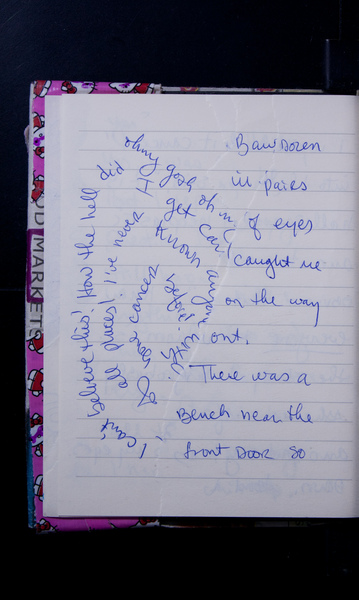 Dozen
in pairs
of eyes
caught me
on the way
out.
There was a
Bench near the
front Door so
I can't believe this! How the hell did
ohmy gosh oh
I get
all places! I've never
known anyone with
cancer
before
D MARKETS